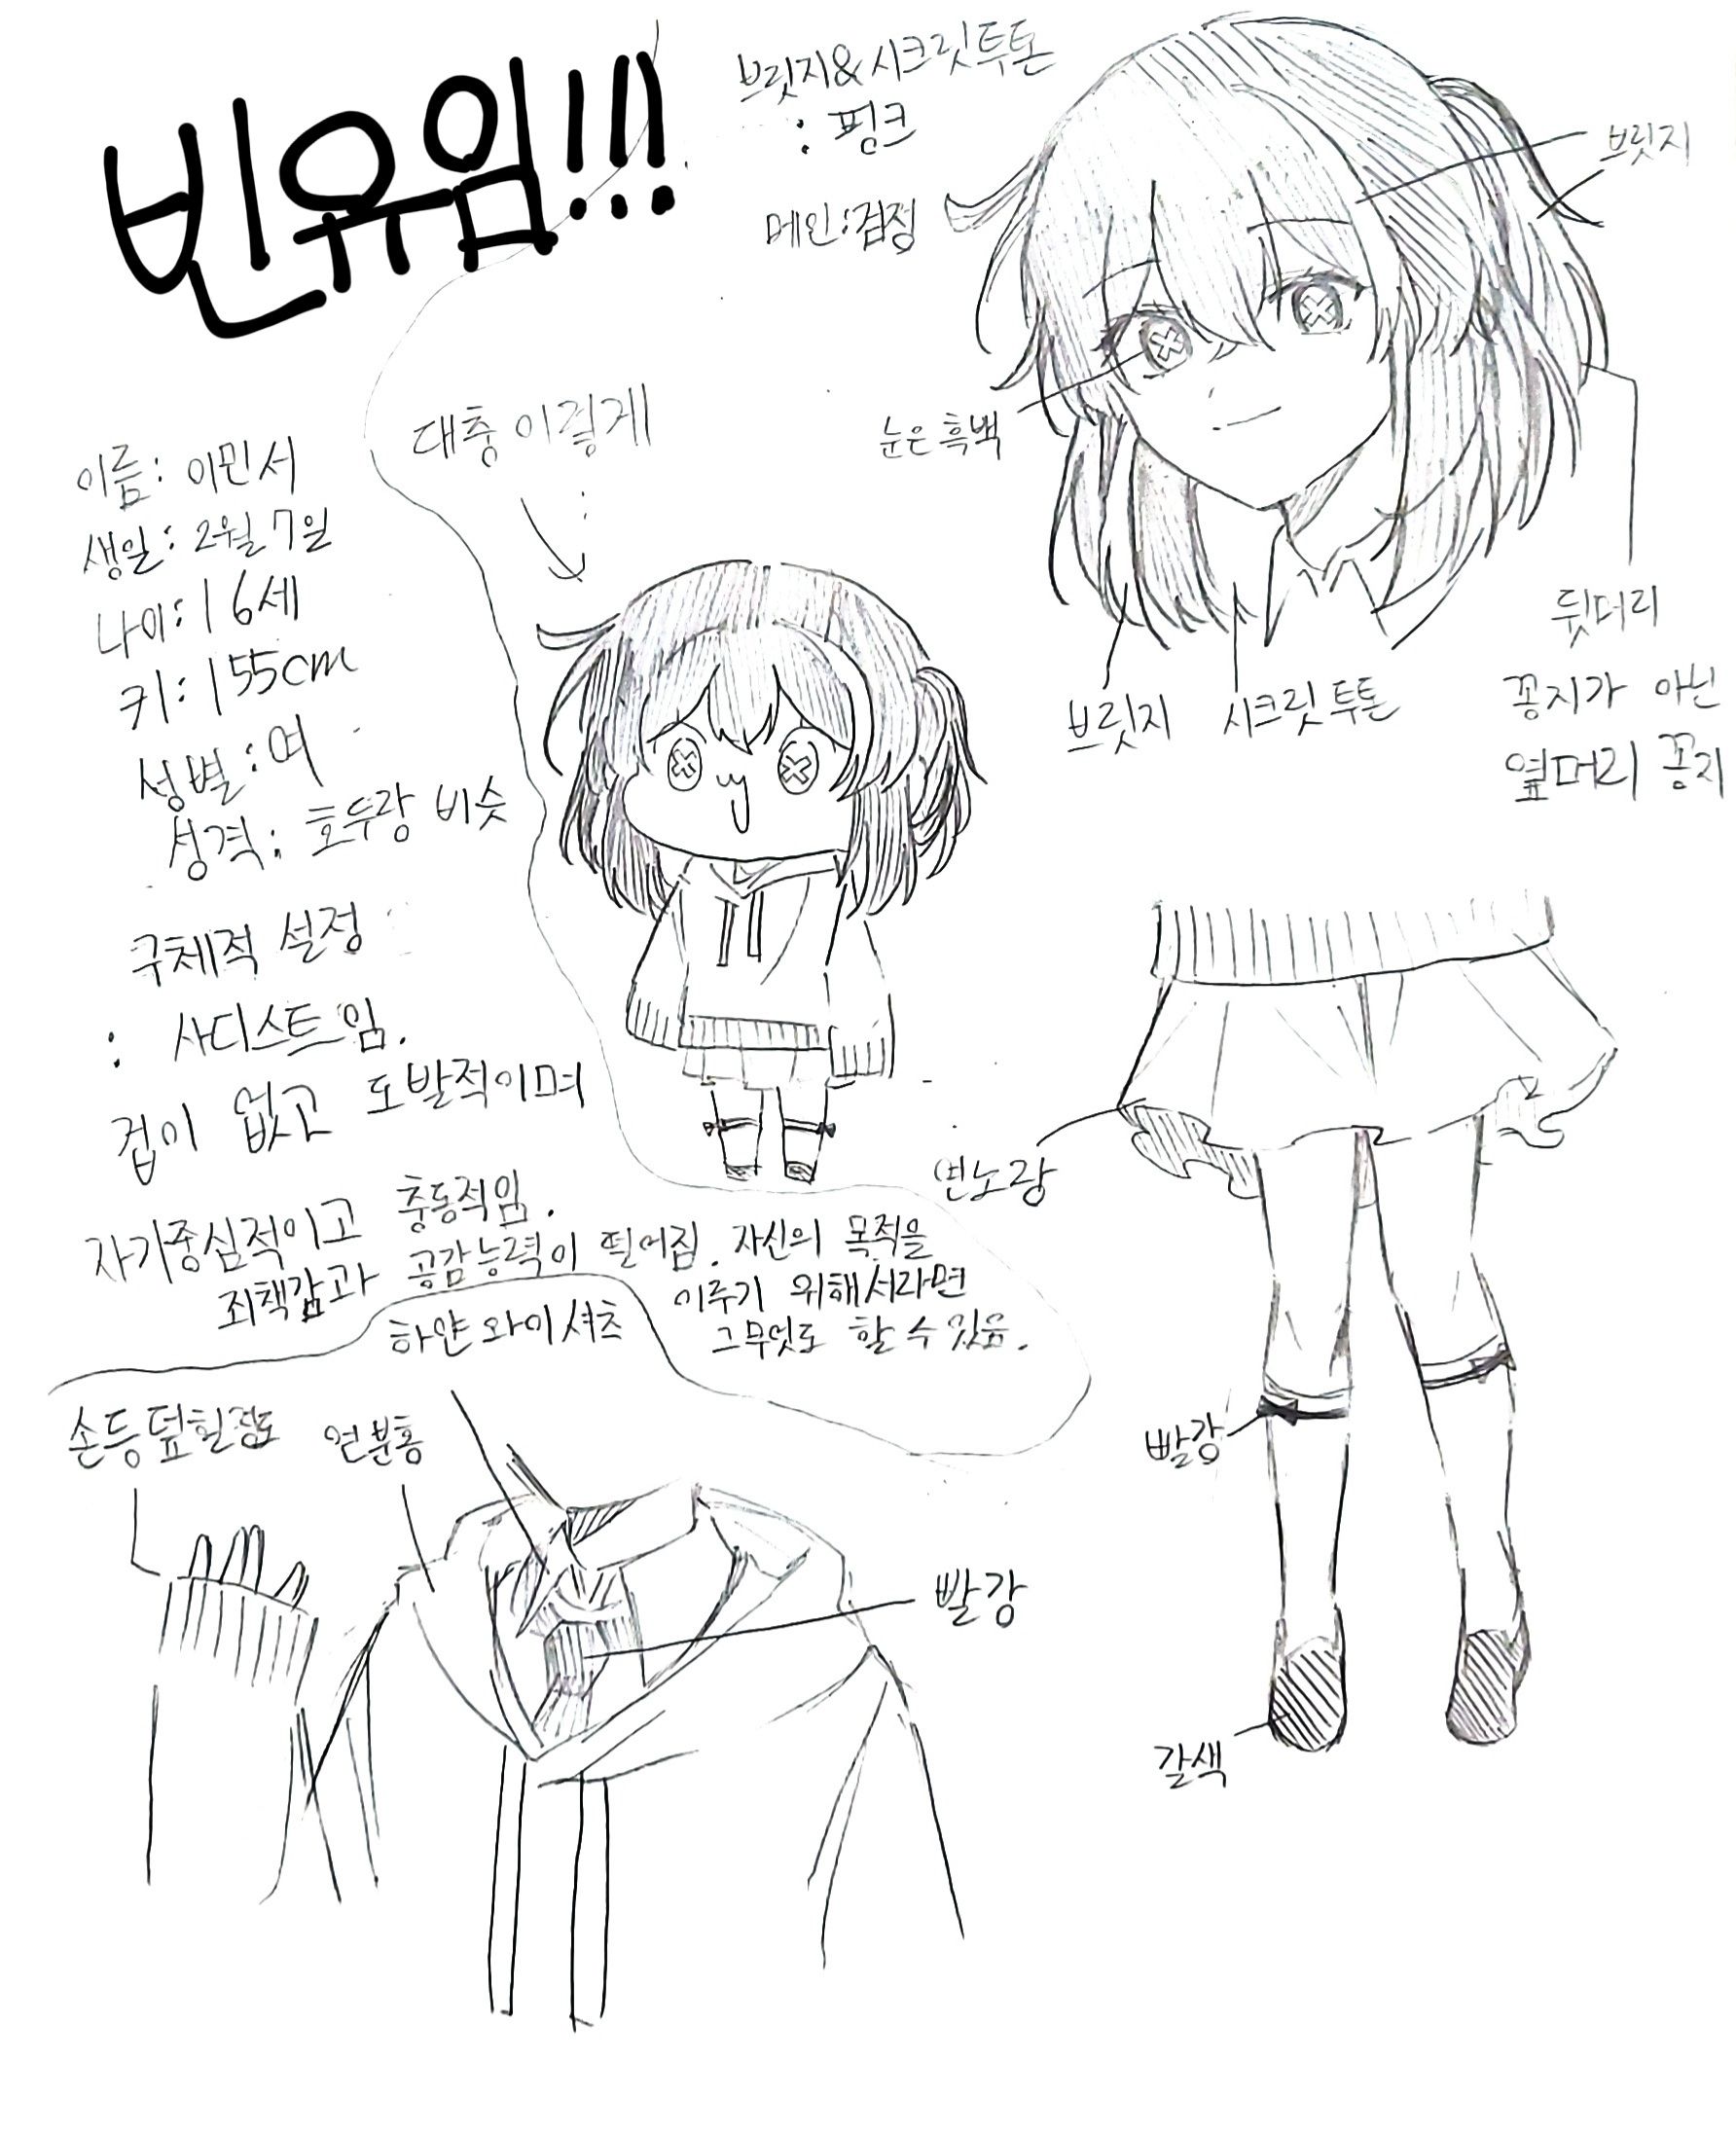 빈유임!!!
브릿지&시크릿투톤
: 핑크
메인:검정
브릿지
눈은 흑백
브릿지
시크릿 투톤
뒷머리
꽁지가 아닌
옆머리 꽁지
대충 이렇게
이름: 이민서
생일: 2월 7일
나이: 16세
키: 155cm
성별: 여
성격: 호두랑 비슷
구체적 설정
: 사디스트임.
겁이 없고 도발적이며
자기중심적이고 충동적임.
죄책감과 공감능력이 떨어짐. 자신의 목적을
이루기 위해서라면
그무엇도 할 수 있음.
하얀 와이셔츠
손등 덮힐정도
연분홍
빨강
연노랑
빨강
갈색